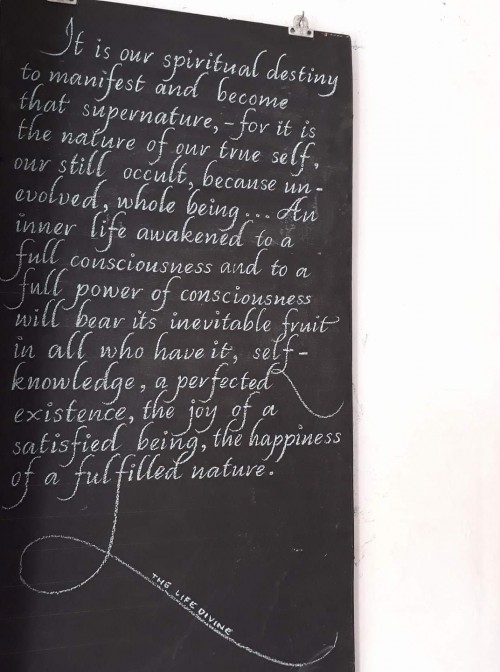 It is our spiritual destiny
to manifest and become
that supernature, - for it is
the nature of our true self,
our still occult, because un-
evolved, whole being... An
inner life awakened to a
full consciousness and to a
full power of consciousness
will bear its inevitable fruit
in all who have it, self-
knowledge, a perfected
existence, the joy of a
satisfied being, the happiness
of a fulfilled nature.
THE LIFE DIVINE